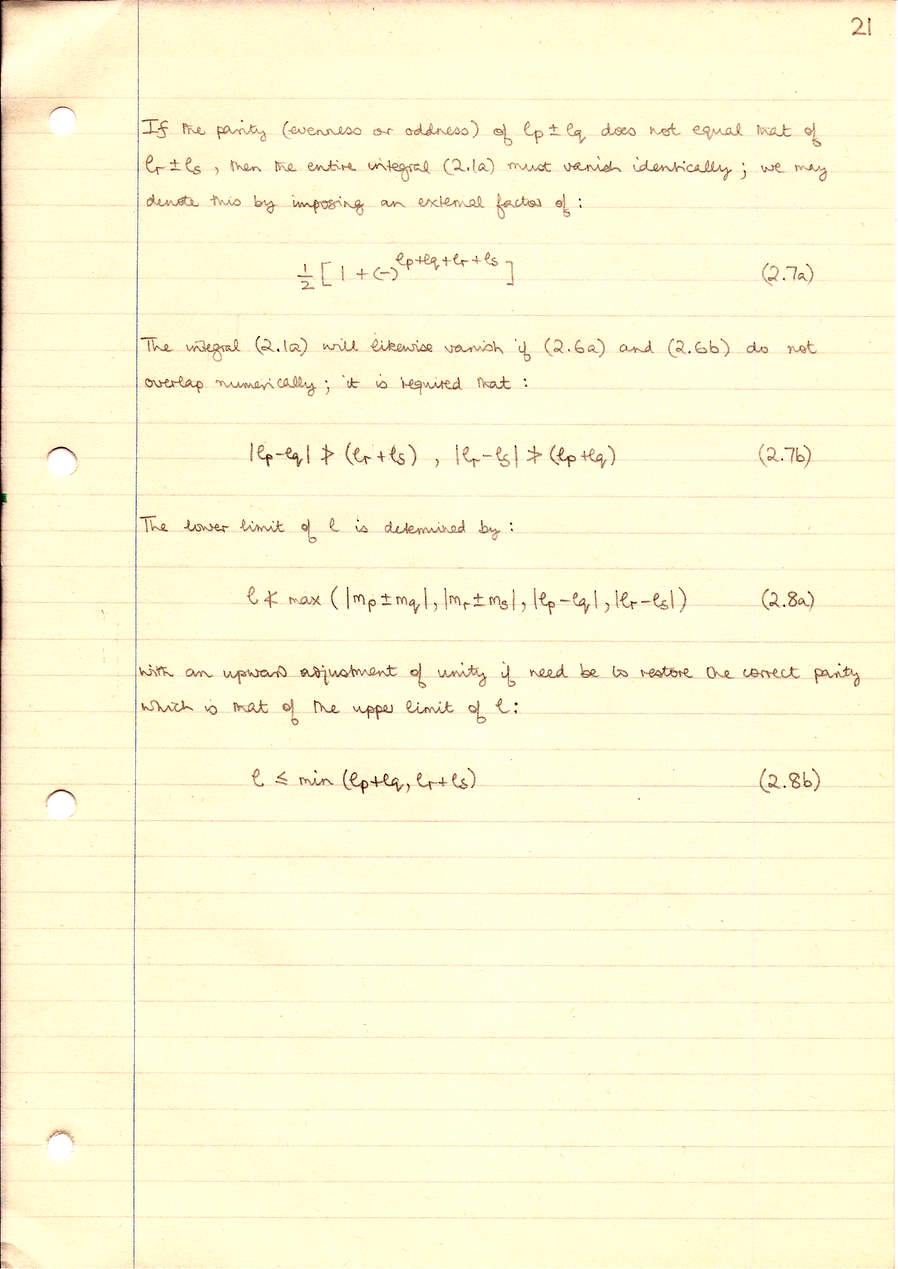 21
If the parity (evenness or oddness) of ℓp ± ℓq does not equal that of
ℓr ± ℓs , then the entire integral (2.1a) must vanish identically ; we may
denote this by imposing an external factor of :
½ [ 1 + (-)^ℓp+ℓq+ℓr+ℓs ] (2.7a)
The integral (2.1a) will likewise vanish if (2.6a) and (2.6b) do not
overlap numerically ; it is required that :
|ℓp-ℓq| ≯ (ℓr+ℓs) , |ℓr-ℓs| ≯ (ℓp+ℓq) (2.7b)
The lower limit of ℓ is determined by :
ℓ ≮ max ( |mp±mq|, |mr±ms|, |ℓp-ℓq|, |ℓr-ℓs| ) (2.8a)
with an upward adjustment of unity if need be to restore the correct parity
which is that of the upper limit of ℓ :
ℓ ≤ min (ℓp+ℓq, ℓr+ℓs) (2.8b)